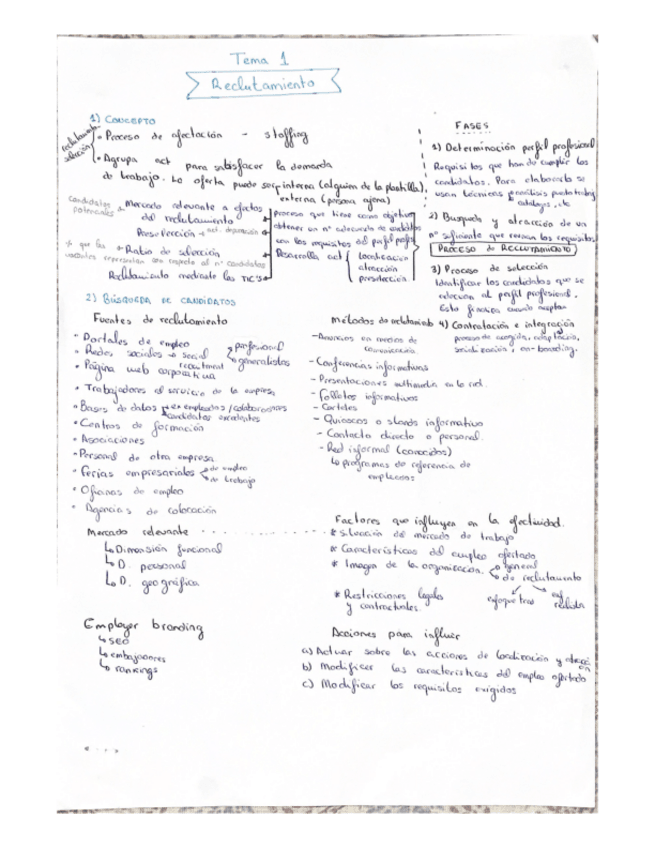 Tema 1
Reclutamiento
1) CONCEPTO
reclutamiento
selección
• Proceso de afectación - staffing
• Agrupa act para satisfacer la demanda
de trabajo. La oferta puede ser interna (alguien de la plantilla),
externa (persona ajena)
candidatos
potenciales
Mercado relevante a efectos
del reclutamiento
Preselección → act. depuración
Ratio de selección
nº candidatos
Reclutamiento mediante las TIC's
proceso que tiene como objetivo
obtener un nº adecuado de candidatos
con los requisitos del perfil profes
Desarrolla act
localización
atracción
preselección
FASES
1) Determinación perfil profesional
Requisitos que han de cumplir los
candidatos. Para elaborarlo se
usan técnicas
catálogos, etc
2) Búsqueda y atracción de un
nº suficiente que reunan los requisitos
PROCESO DE RECLUTAMIENTO
3) Proceso de selección
Identificar los candidatos que se
adecuan al perfil profesional.
Esto finaliza cuando aceptan
4) Contratación e integración
proceso de acogida, adaptación,
socialización, on-boarding.
2) BÚSQUEDA DE CANDIDATOS
Fuentes de reclutamiento
• Portales de empleo
• Redes sociales → social
recruitment
profesional
generalistas
• Página web corporativa
• Trabajadores al servicio de la empresa
• Bases de datos
ex empleados / colaboradores
candidatos excedentes
• Centros de formación
• Asociaciones
• Personal de otra empresa
• Ferias empresariales
de empleo
de trabajo
• Oficinas de empleo
• Agencias de colocación
Métodos de reclutamiento
- Anuncios en medios de
comunicación
- Conferencias informativas
- Presentaciones multimedia en la red.
- folletos informativos
- Carteles
- Quioscos o stands informativo
- Contacto directo o personal.
- Red informal (conocidos)
↳ programas de referencia de
empleados
Mercado relevante
↳ Dimensión funcional
↳ D. personal
↳ D. geográfica
Factores que influyen en la efectividad.
* Situación del mercado de trabajo
* Características del empleo ofertado
* Imagen de la organización.
general
de reclutamiento
* Restricciones legales
y contractuales.
enfoque trad
enf
realista
Employer branding
↳ SEO
↳ embajadores
↳ rankings
Acciones para influir
a) Actuar sobre las acciones de localización y atracción
b) Modificar las características del empleo ofertado
c) Modificar los requisitos exigidos